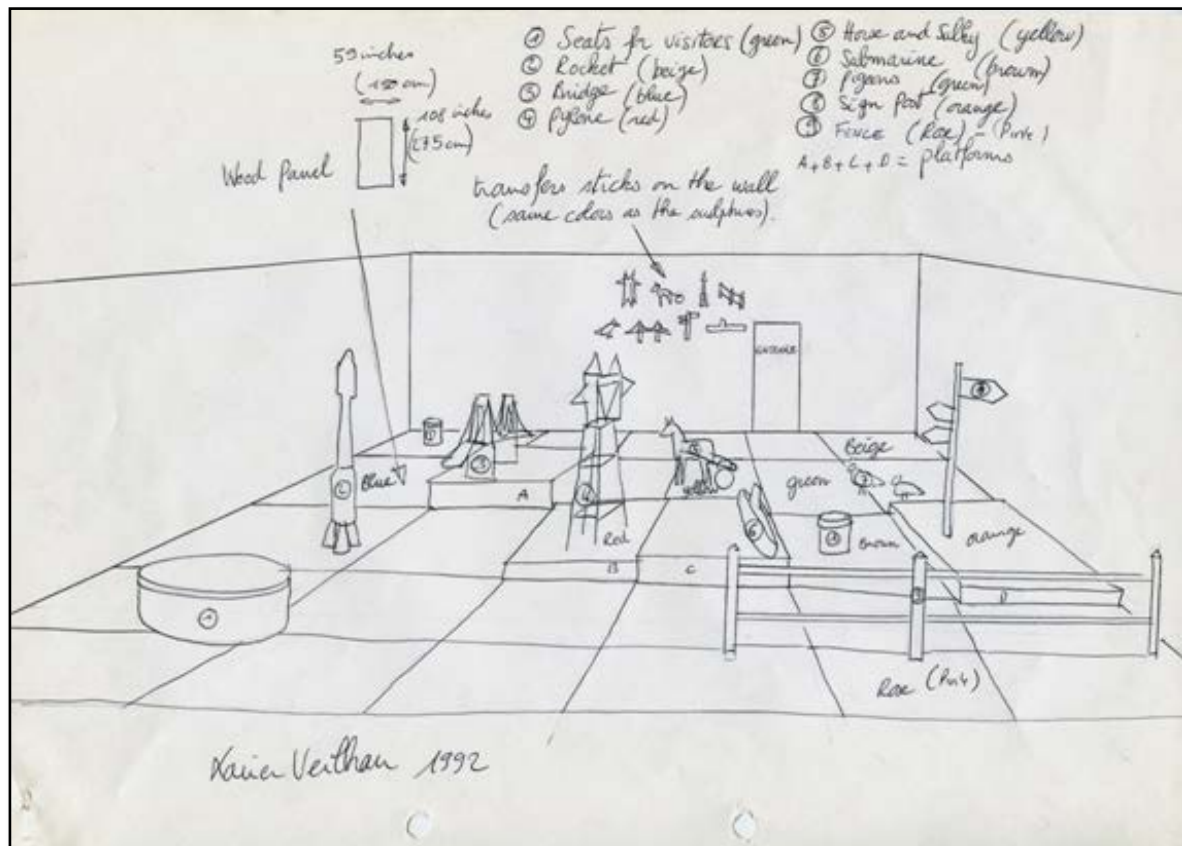 59 inches
(150 cm)
108 inches
(275 cm)
Wood Panel
① Seats for visitors (green)
② Rocket (beige)
③ Bridge (blue)
④ Pylone (red)
⑤ Horse and Sulky (yellow)
⑥ Submarine (brown)
⑦ Pigeons (green)
⑧ Sign Post (orange)
⑨ FENCE (Rose) - (Pink)
A+B+C+D = platforms
transfers sticks on the wall
(same colors as the sculptures).
ENTRANCE
1
8
Beige
3
Blue
2
A
5
yellow
green
7
4
6
1
Brown
orange
Red
B
C
D
9
1
Rose (Pink)
Xavier Veilhan 1992